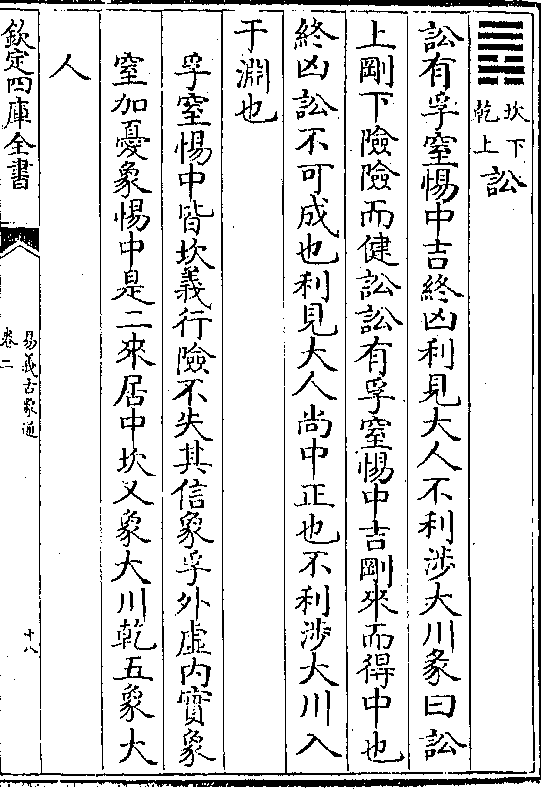 坎下
乾上
訟
訟有孚窒惕中吉終凶利見大人不利涉大川彖曰訟
上剛下險險而健訟訟有孚窒惕中吉剛來而得中也
終凶訟不可成也利見大人尚中正也不利涉大川入
于淵也
孚窒惕中皆坎義行險不失其信象孚外虚内實象
窒加憂象惕中是二來居中坎又象大川乾五象大
人
欽定四庫全書
易義古象通
卷二
十八